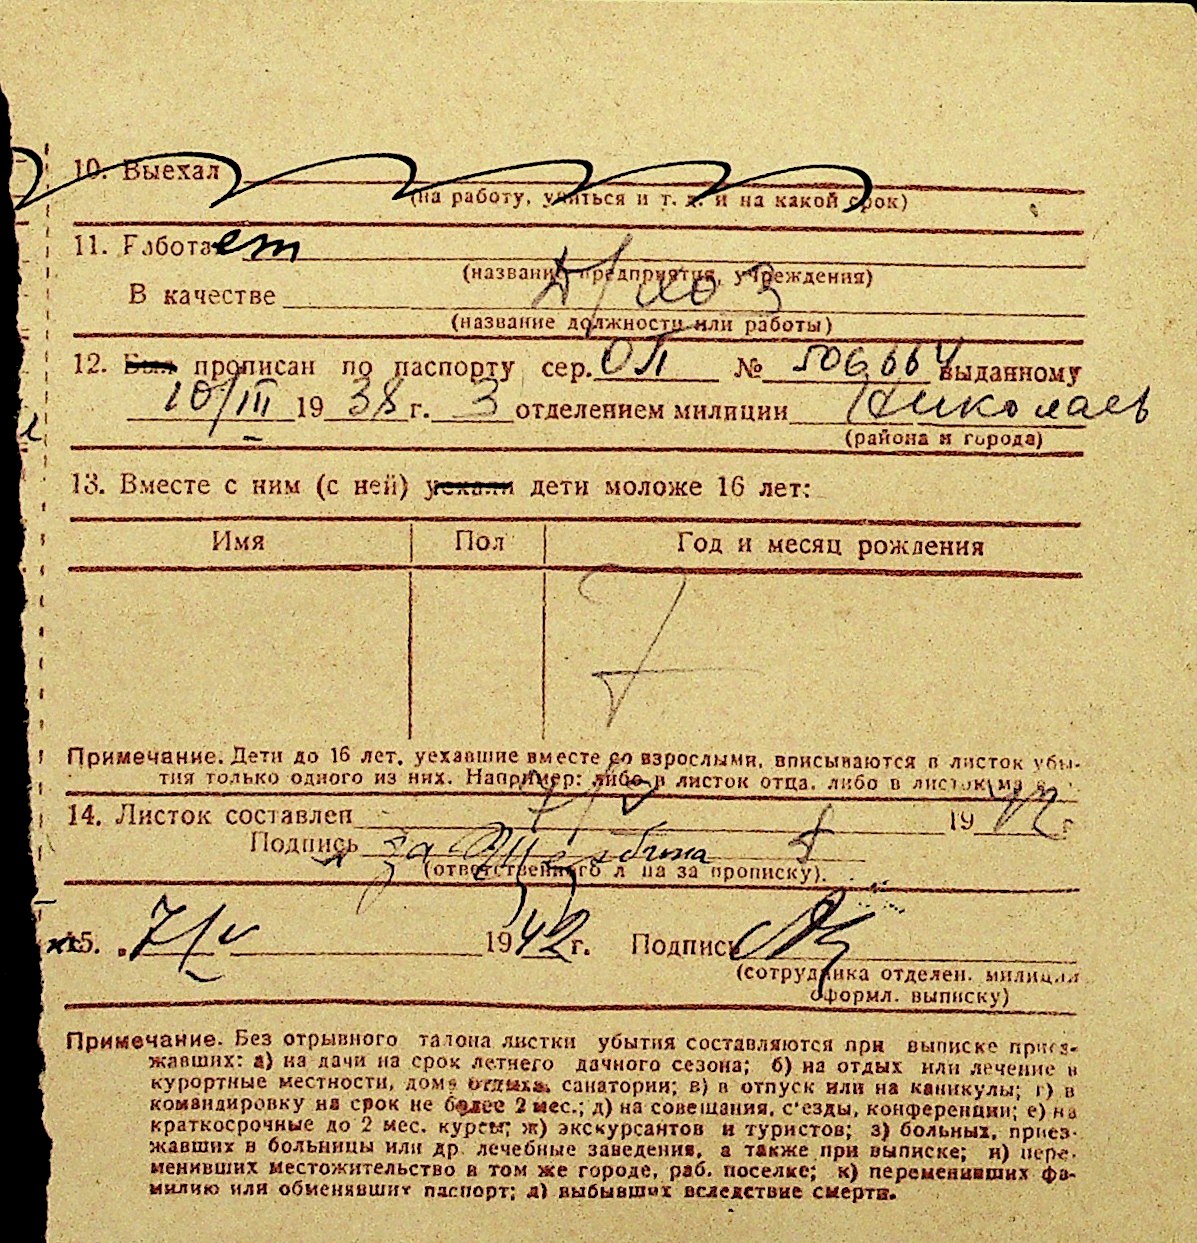 10. Выехал
(на работу, учиться и т. д. и на какой срок)
11. Работает
(название предприятия, учреждения)
В качестве
(название должности или работы)
12. Был прописан по паспорту сер. ОП № 506664 выданному
10/III 1938 г. 3 отделением милиции Николаев
(района и города)
13. Вместе с ним (с ней) уехали дети моложе 16 лет:
Имя Пол Год и месяц рождения
Примечание. Дети до 16 лет, уехавшие вместе со взрослыми, вписываются в листок убы-
тия только одного из них. Например: либо в листок отца, либо в листок
14. Листок составлен 7/V 19 г
Подпись за Щербина
(ответственного л ца за прописку).
15. „7/V 1942 г. Подпись
(сотрудника отделен. милиции
оформл. выписку)
Примечание. Без отрывного талона листки убытия составляются при выписке приез-
жавших: а) на дачи на срок летнего дачного сезона; б) на отдых или лечение в
курортные местности, дома отдыха, санатории; в) в отпуск или на каникулы; г) в
командировку на срок не более 2 мес.; д) на совещания, с'езды, конференции; е) на
краткосрочные до 2 мес. курсы; ж) экскурсантов и туристов; з) больных, приез-
жавших в больницы или др. лечебные заведения, а также при выписке; и) пере-
менивших местожительство в том же городе, раб. поселке; к) переменивших фа-
милию или обменявших паспорт; л) выбывших вследствие смерти.